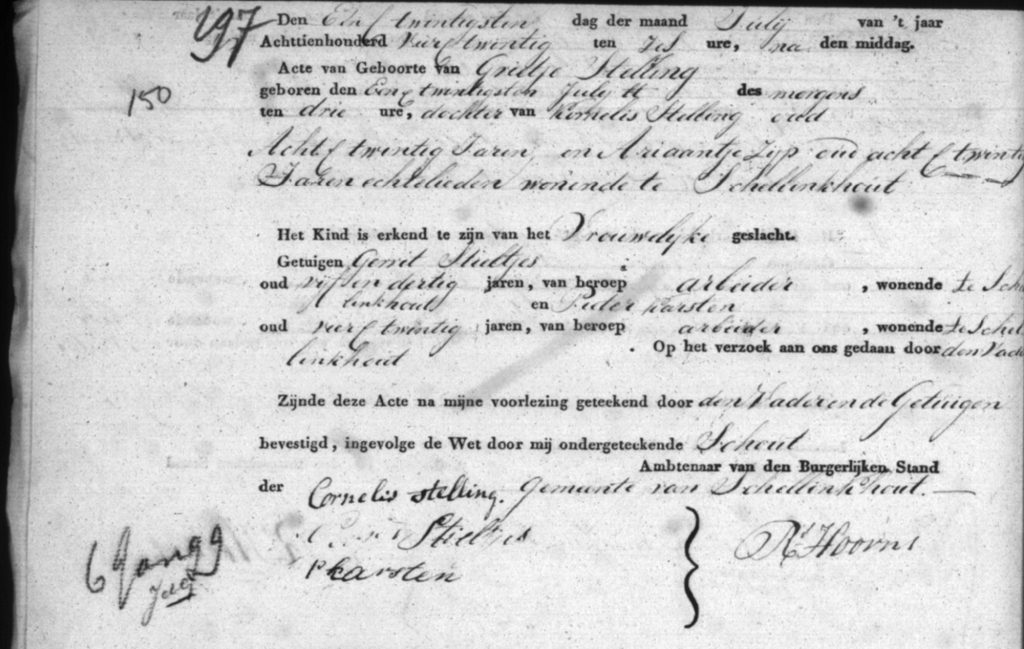 197
Den Een & twintigsten dag der maand July van 't jaar
Achttienhonderd vier & twintig ten zes ure, na den middag.
150
Acte van Geboorte van Grietje Stelling
geboren den Een & twintigsten July tt des morgens
ten drie ure, dochter van Kornelis Stelling oud
Acht & twintig Jaren, en Ariaantje Zijp oud acht & twintig
Jaren echtelieden wonende te Schellinkhout
Het Kind is erkend te zijn van het Vrouwelijke geslacht.
Getuigen Gerrit Stieltjes
oud vijf en dertig jaren, van beroep arbeider, wonende te Schel
linkhout en Pieter Karsten
oud vier & twintig jaren, van beroep arbeider, wonende te Schel
linkhout. Op het verzoek aan ons gedaan door den Vader
Zijnde deze Acte na mijne voorlezing geteekend door den Vader en de Getuigen
bevestigd, ingevolge de Wet door mij ondergeteekende Schout
Ambtenaar van den Burgerlijken Stand
der Gemeente van Schellinkhout.
Cornelis stelling.
Stieltjes
P karsten